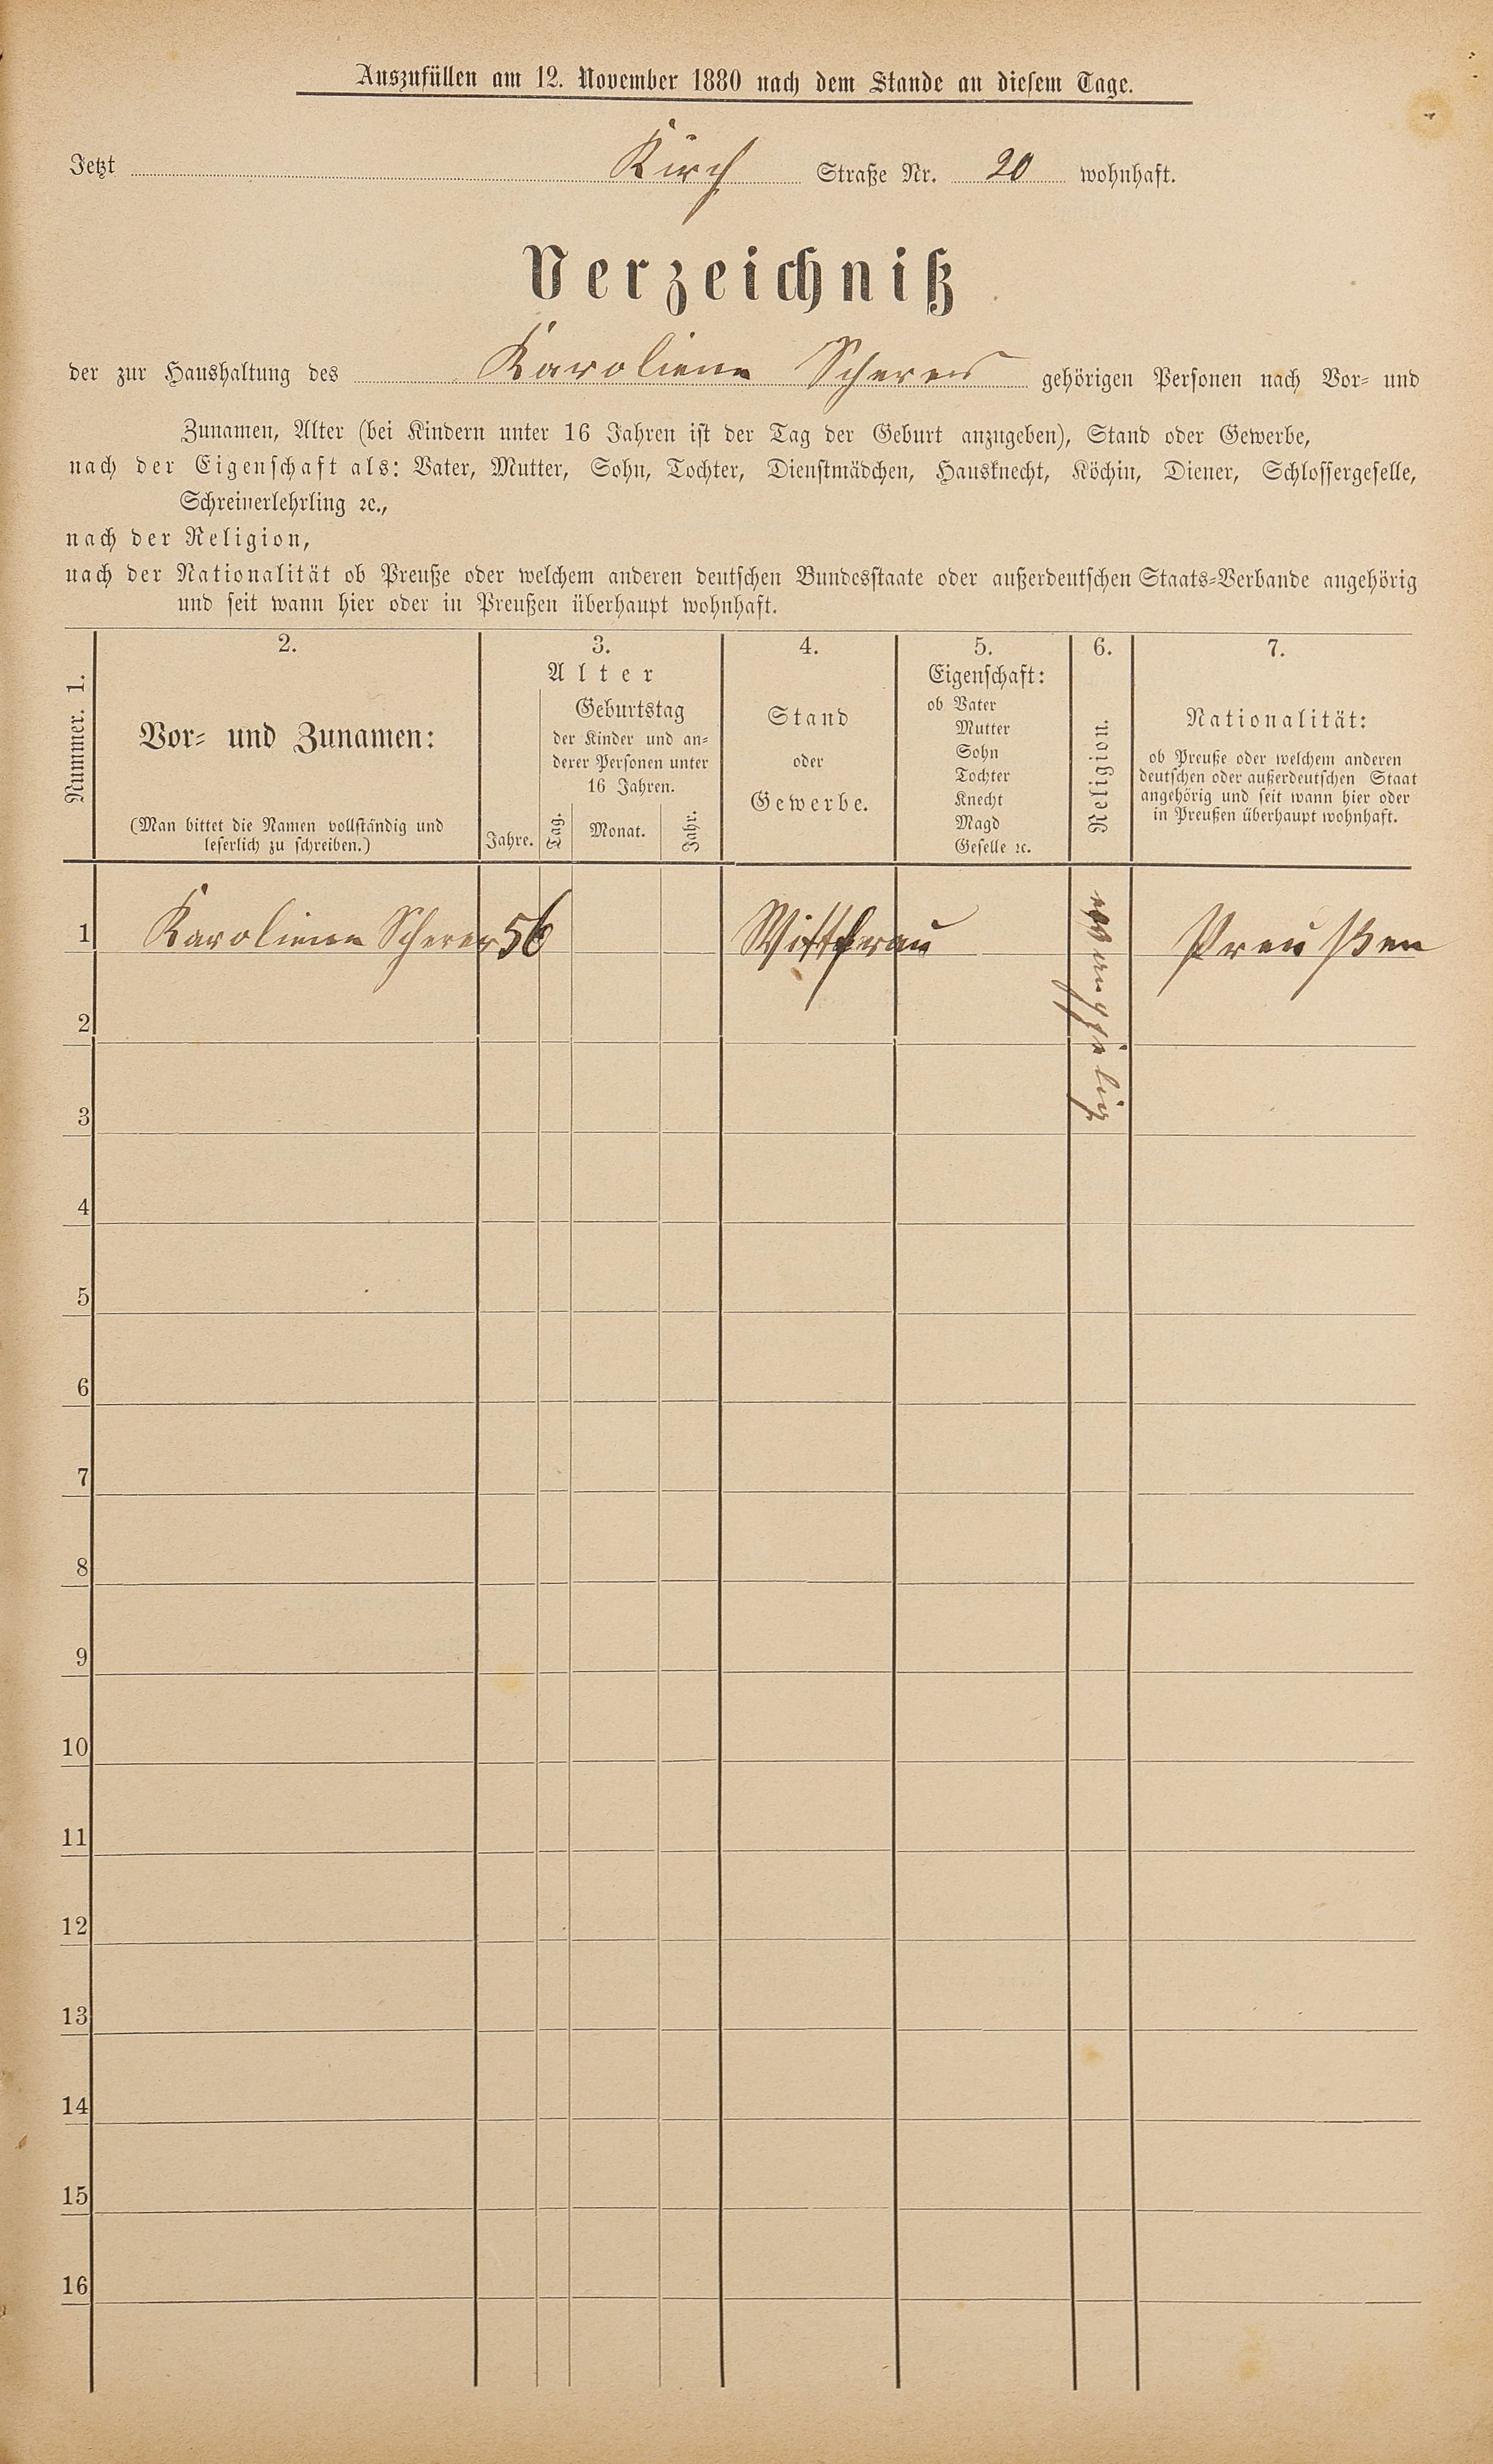 Auszufüllen am 12. November 1880 nach dem Stande an diesem Tage.
Jetzt Kirch Straße Nr. 20 wohnhaft.
Verzeichniß
der zur Haushaltung des Karoliene gehörigen Personen nach Vor- und
Zunamen, Alter (bei Kindern unter 16 Jahren ist der Tag der Geburt anzugeben), Stand oder Gewerbe,
nach der Eigenschaft als: Vater, Mutter, Sohn, Tochter, Dienstmädchen, Hausknecht, Köchin, Diener, Schlossergeselle,
Schreinerlehrling ꝛc.,
nach der Religion,
nach der Nationalität ob Preuße oder welchem anderen deutschen Bundesstaate oder außerdeutschen Staats-Verbande angehörig
und seit wann hier oder in Preußen überhaupt wohnhaft.
Nummer. 1.
2.
Vor- und Zunamen:
(Man bittet die Namen vollständig und
leserlich zu schreiben.)
3.
Alter
Jahre.
Geburtstag
der Kinder und an-
derer Personen unter
16 Jahren.
Tag.
Monat.
Jahr.
4.
Stand
oder
Gewerbe.
5.
Eigenschaft:
ob Vater
Mutter
Sohn
Tochter
Knecht
Magd
Geselle ꝛc.
6.
Religion.
7.
Nationalität:
ob Preuße oder welchem anderen
deutschen oder außerdeutschen Staat
angehörig und seit wann hier oder
in Preußen überhaupt wohnhaft.
1 Karoliene Scherer 56 Preußen
2
3
4
5
6
7
8
9
10
11
12
13
14
15
16